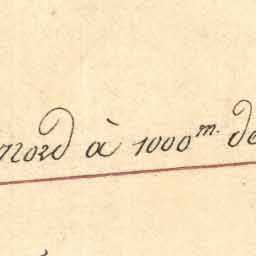 nord à 1000m. de